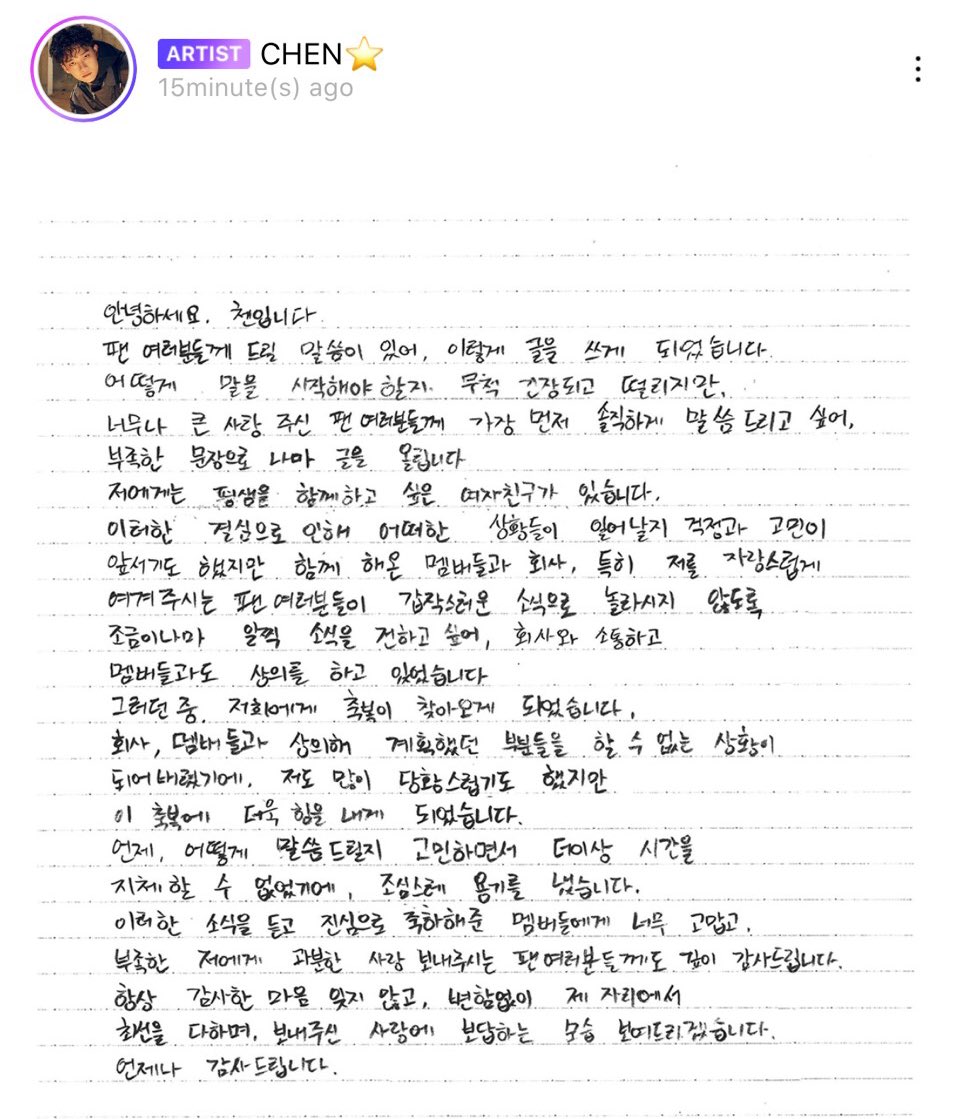 ARTIST CHEN⭐
15minute(s) ago
안녕하세요. 첸입니다
팬 여러분들께 드릴 말씀이 있어, 이렇게 글을 쓰게 되었습니다.
어떻게 말을 시작해야 할지 무척 긴장되고 떨리지만,
너무나 큰 사랑 주신 팬 여러분들께 가장 먼저 솔직하게 말씀드리고 싶어,
부족한 문장으로 나마 글을 올립니다
저에게는 평생을 함께하고 싶은 여자친구가 있습니다.
이러한 결심으로 인해 어떠한 상황들이 일어날지 걱정과 고민이
앞서기도 했지만 함께 해온 멤버들과 회사, 특히 저를 자랑스럽게
여겨주시는 팬 여러분들이 갑작스러운 소식으로 놀라시지 않도록
조금이나마 일찍 소식을 전하고 싶어, 회사와 소통하고
멤버들과도 상의를 하고 있었습니다
그러던 중, 저희에게 축복이 찾아오게 되었습니다.
회사, 멤버들과 상의해 계획했던 부분들을 할 수 없는 상황이
되어버렸기에, 저도 많이 당황스럽기도 했지만
이 축복에 더욱 힘을 내게 되었습니다.
언제, 어떻게 말씀드릴지 고민하면서 더이상 시간을
지체할 수 없었기에, 조심스레 용기를 냈습니다.
이러한 소식을 듣고 진심으로 축하해준 멤버들에게 너무 고맙고,
부족한 저에게 과분한 사랑 보내주시는 팬 여러분들께도 깊이 감사드립니다.
항상 감사한 마음 잊지 않고, 변함없이 제 자리에서
최선을 다하며, 보내주신 사랑에 보답하는 모습 보여드리겠습니다.
언제나 감사드립니다.